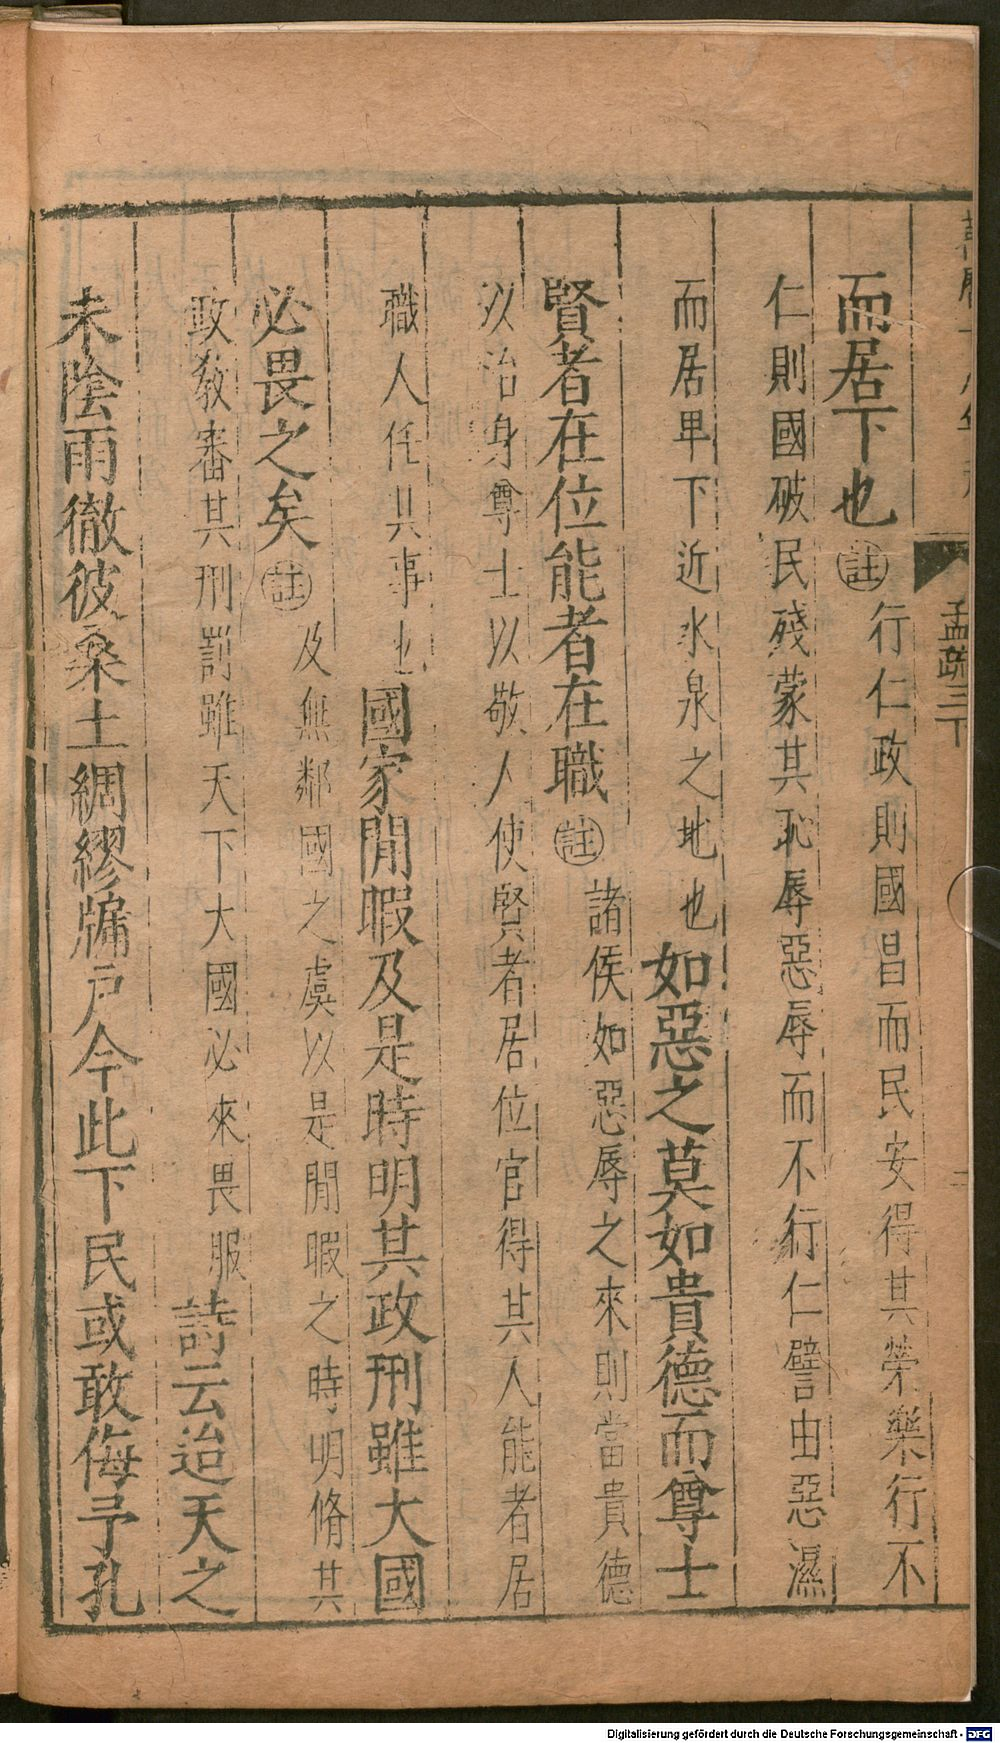 孟疏三下
而居下也㊟行仁政則國昌而民安得其榮樂行不
仁則國破民殘蒙其恥辱惡辱而不行仁譬由惡濕
而居卑下近水泉之地也如惡之莫如貴德而尊士
賢者在位能者在職㊟諸侯如惡辱之來則當貴德
以治身尊士以敬人使賢者居位官得其人能者居
職人任其事也國家閒暇及是時明其政刑雖大國
必畏之矣㊟及無鄰國之虞以是閒暇之時明脩其
政教審其刑罰雖天下大國必來畏服詩云迨天之
未陰雨徹彼桑土綢繆牖戶今此下民或敢侮予孔
Digitalisierung gefördert durch die Deutsche Forschungsgemeinschaft - DFG